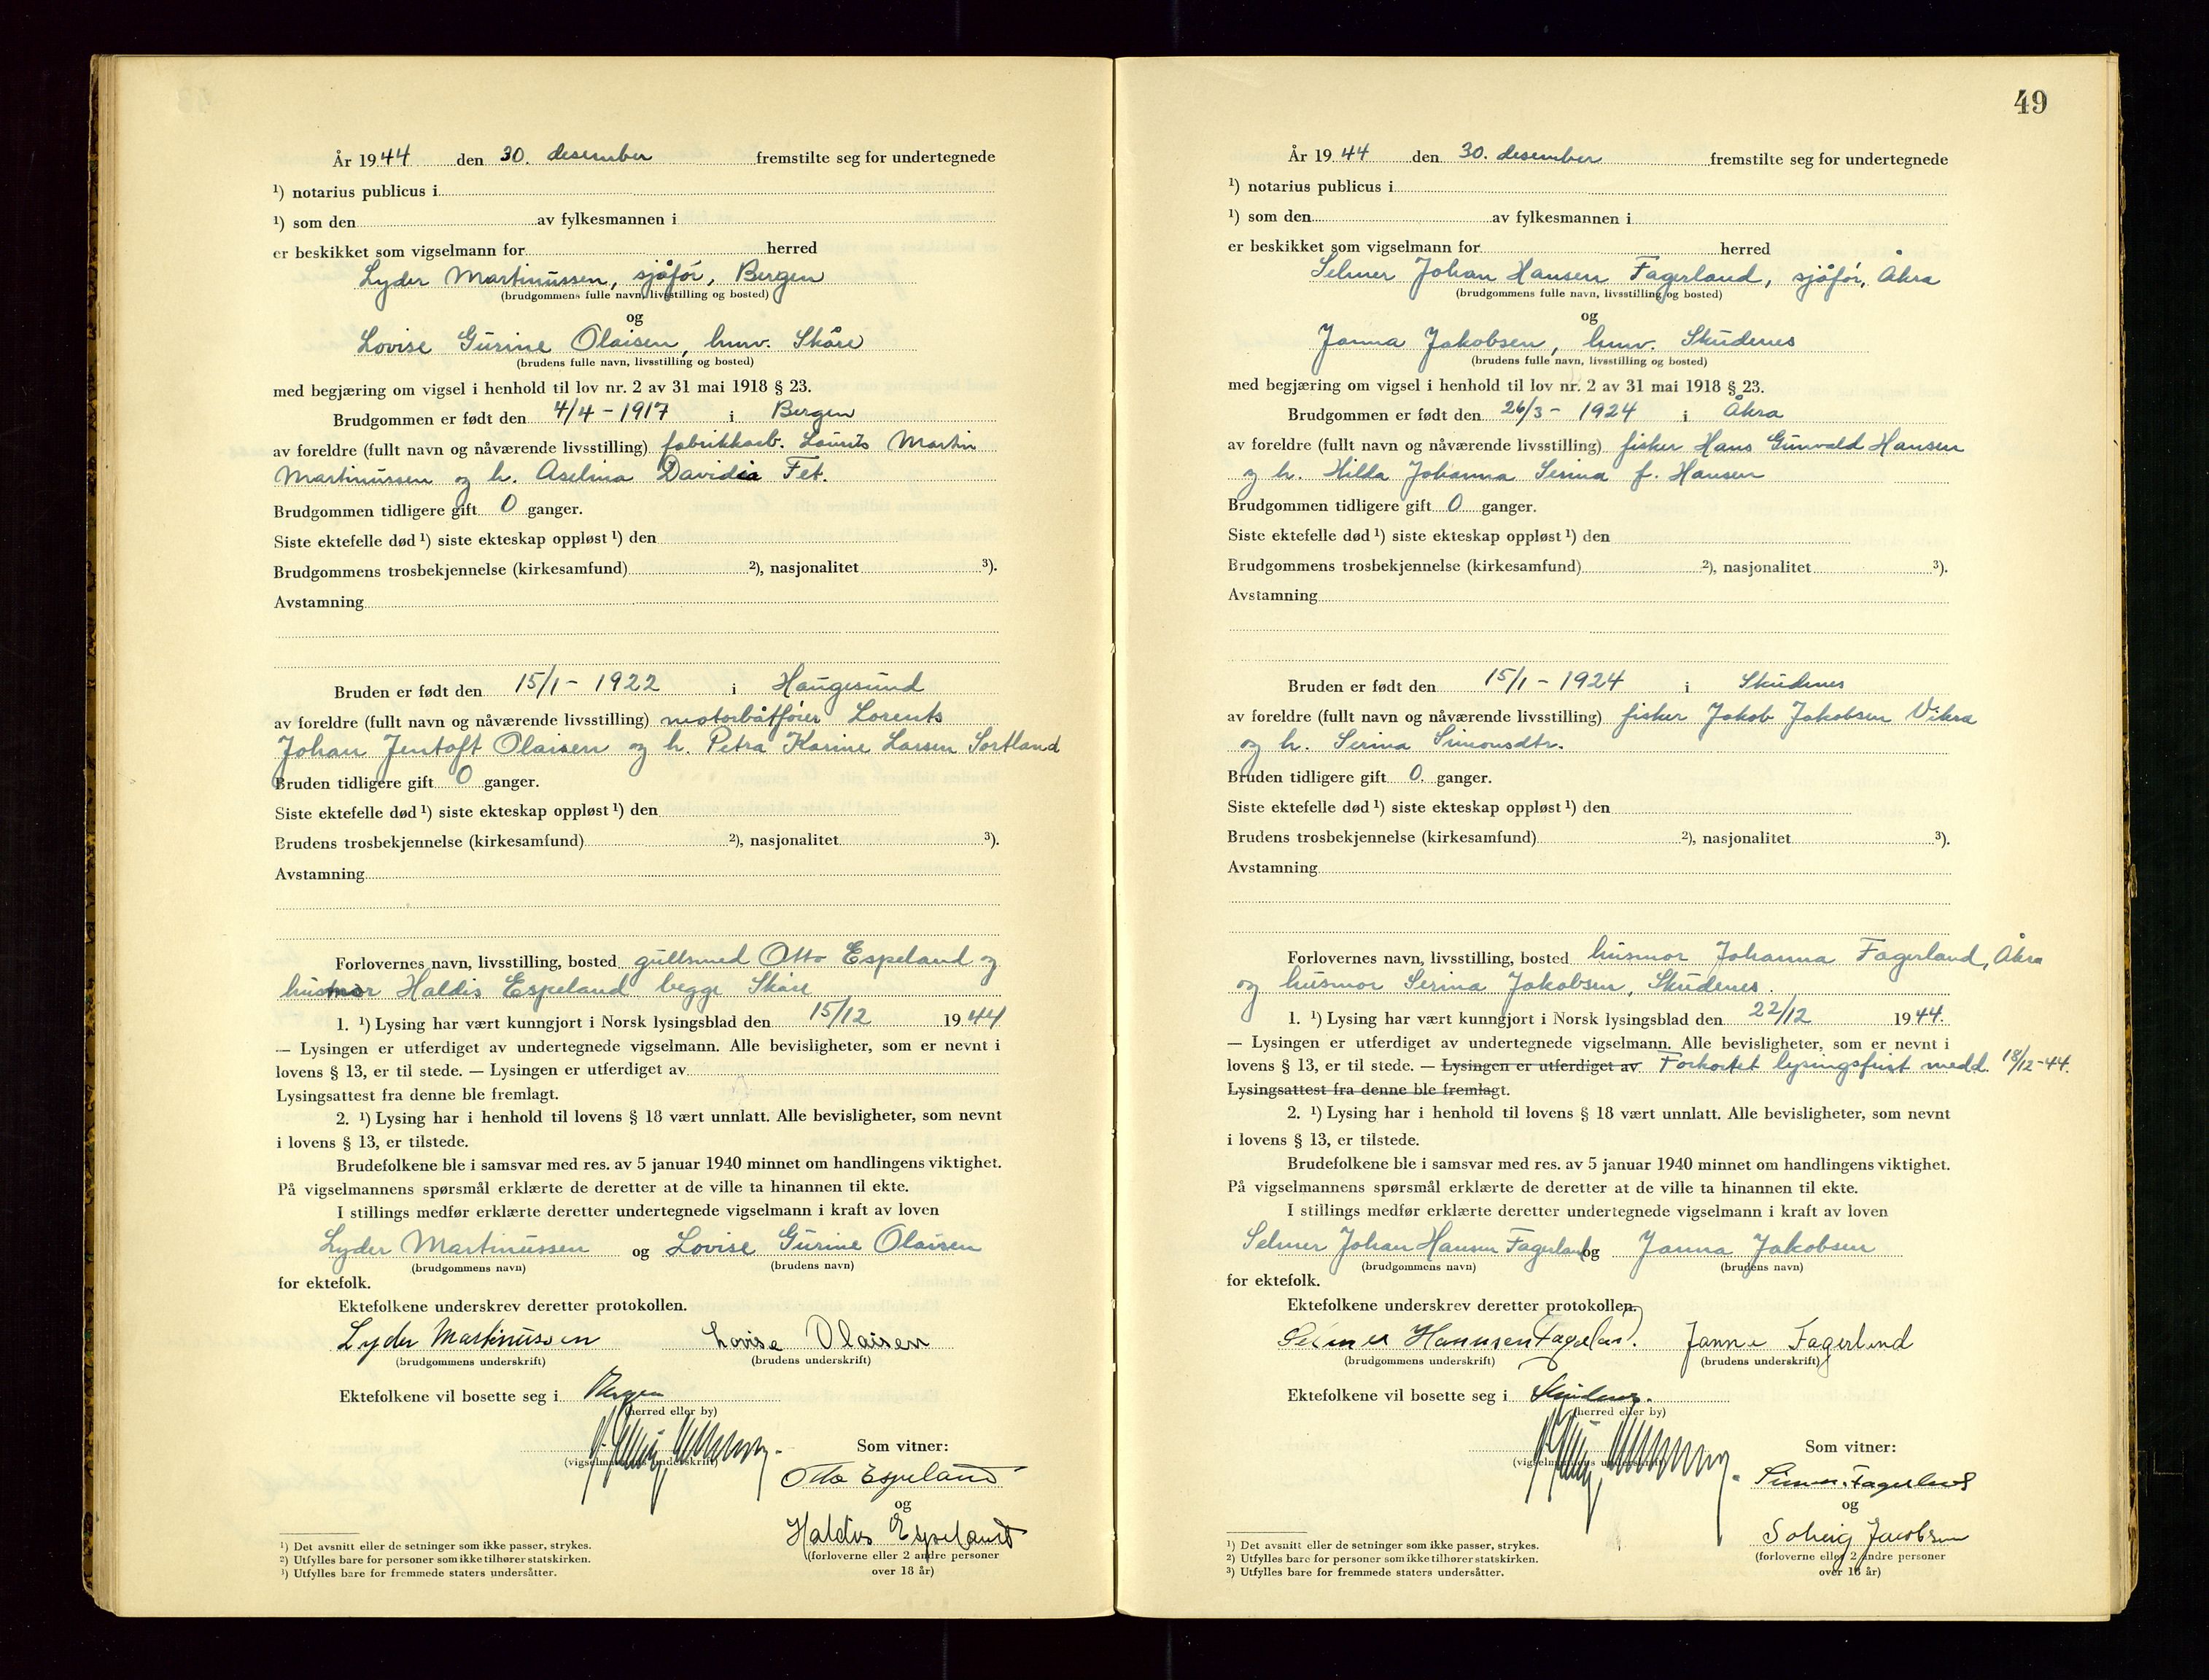 År 1944 den 30. desember fremstilte seg for undertegnede
¹) notarius publicus i
¹) som den av fylkesmannen i
er beskikket som vigselmann for herred
Lyder Martinussen, sjåfør, Bergen
(brudgommens fulle navn, livsstilling og bosted)
og
Lovise Gurine Olaisen, hmv. Skåre
(brudens fulle navn, livsstilling og bosted)
med begjæring om vigsel i henhold til lov nr. 2 av 31 mai 1918 § 23.
Brudgommen er født den 4/4 - 1917 i Bergen
av foreldre (fullt navn og nåværende livsstilling) fabrikkarb. Laurits Martin
Martinussen og h. Aselina Davidia Fet.
Brudgommen tidligere gift 0 ganger.
Siste ektefelle død ¹) siste ekteskap oppløst ¹) den
Brudgommens trosbekjennelse (kirkesamfund) ²), nasjonalitet ³).
Avstamning
Bruden er født den 15/1 - 1922 i Haugesund
av foreldre (fullt navn og nåværende livsstilling) motorbåtfører Lorents
Johan Jentoft Olaisen og h. Petra Karine Larsen Sortland
Bruden tidligere gift 0 ganger.
Siste ektefelle død ¹) siste ekteskap oppløst ¹) den
Brudens trosbekjennelse (kirkesamfund) ²), nasjonalitet ³).
Avstamning
Forlovernes navn, livsstilling, bosted gullsmed Otto Espeland og
husmor Haldis Espeland begge Skåre
1. ¹) Lysing har vært kunngjort i Norsk lysingsblad den 15/12 1944
— Lysingen er utferdiget av undertegnede vigselmann. Alle bevisligheter, som er nevnt i
lovens § 13, er til stede. — Lysingen er utferdiget av
Lysingsattest fra denne ble fremlagt.
2. ¹) Lysing har i henhold til lovens § 18 vært unnlatt. Alle bevisligheter, som nevnt
i lovens § 13, er tilstede.
Brudefolkene ble i samsvar med res. av 5 januar 1940 minnet om handlingens viktighet.
På vigselmannens spørsmål erklærte de deretter at de ville ta hinannen til ekte.
I stillings medfør erklærte deretter undertegnede vigselmann i kraft av loven
Lyder Martinussen og Lovise Gurine Olaisen
(brudgommens navn) (brudens navn)
for ektefolk.
Ektefolkene underskrev deretter protokollen.
Lyder Martinussen Lovise Olaisen
(brudgommens underskrift) (brudens underskrift)
Ektefolkene vil bosette seg i Bergen
(herred eller by)
Som vitner:
(vigselmannens underskrift)
Otto Espeland
og
Haldis Espeland
(forloverne eller 2 andre personer
over 18 år)
¹) Det avsnitt eller de setninger som ikke passer, strykes.
²) Utfylles bare for personer som ikke tilhører statskirken.
³) Utfylles bare for fremmede staters undersåtter.
49
År 1944 den 30. desember fremstilte seg for undertegnede
¹) notarius publicus i
¹) som den av fylkesmannen i
er beskikket som vigselmann for herred
Selmer Johan Hansen Fagerland, sjåfør, Åkra
(brudgommens fulle navn, livsstilling og bosted)
og
Janna Jakobsen, hmv. Skudenes
(brudens fulle navn, livsstilling og bosted)
med begjæring om vigsel i henhold til lov nr. 2 av 31 mai 1918 § 23.
Brudgommen er født den 26/3 - 1924 i Åkra
av foreldre (fullt navn og nåværende livsstilling) fisker Hans Gunvald Hansen
og h. Hilda Johanna Serina f. Hansen
Brudgommen tidligere gift 0 ganger.
Siste ektefelle død ¹) siste ekteskap oppløst ¹) den
Brudgommens trosbekjennelse (kirkesamfund) ²), nasjonalitet ³).
Avstamning
Bruden er født den 15/1 - 1924 i Skudenes
av foreldre (fullt navn og nåværende livsstilling) fisker Jakob Jakobsen Vikra
og h. Serina Simonsdtr.
Bruden tidligere gift 0. ganger.
Siste ektefelle død ¹) siste ekteskap oppløst ¹) den
Brudens trosbekjennelse (kirkesamfund) ²), nasjonalitet ³).
Avstamning
Forlovernes navn, livsstilling, bosted husmor Johanna Fagerland, Åkra
og husmor Serina Jakobsen, Skudenes.
1. ¹) Lysing har vært kunngjort i Norsk lysingsblad den 22/12 1944.
— Lysingen er utferdiget av undertegnede vigselmann. Alle bevisligheter, som er nevnt i
lovens § 13, er til stede. — Lysingen er utferdiget av Forkortet lysingsfrist medd. 18/12-44.
Lysingsattest fra denne ble fremlagt.
2. ¹) Lysing har i henhold til lovens § 18 vært unnlatt. Alle bevisligheter, som nevnt
i lovens § 13, er tilstede.
Brudefolkene ble i samsvar med res. av 5 januar 1940 minnet om handlingens viktighet.
På vigselmannens spørsmål erklærte de deretter at de ville ta hinannen til ekte.
I stillings medfør erklærte deretter undertegnede vigselmann i kraft av loven
Selmer Johan Hansen Fagerland og Janna Jakobsen
(brudgommens navn) (brudens navn)
for ektefolk.
Ektefolkene underskrev deretter protokollen.
Selmer Hannsen Fagerland. Janna Fagerland
(brudgommens underskrift) (brudens underskrift)
Ektefolkene vil bosette seg i Skudenes.
(herred eller by)
Som vitner:
(vigselmannens underskrift)
Fagerland
og
Solveig Jacobsen
(forloverne eller 2 andre personer
over 18 år)
¹) Det avsnitt eller de setninger som ikke passer, strykes.
²) Utfylles bare for personer som ikke tilhører statskirken.
³) Utfylles bare for fremmede staters undersåtter.